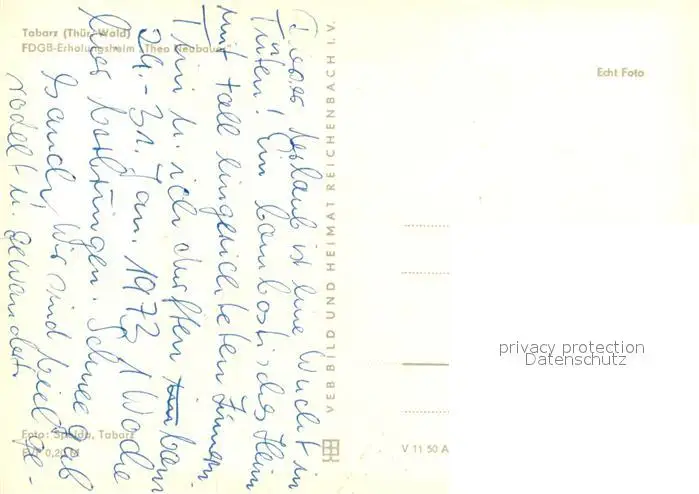 Tabarz (Thür. Wald)
FDGB-Erholungsheim „Theo Neubauer“
Echt Foto
Dieser Urlaub ist eine Wucht in
Tüten! Ein bombastisches Heim
mit toll eingerichteten Zimmern.
u. ich durften
24.-31. Jan. 1973 1 Woche
hier verbringen. Schnee gab
es auch. Wir sind viel ge-
rodelt u. gewandert.
VEB BILD UND HEIMAT REICHENBACH I. V.
Foto: Speida, Tabarz
EVP 0,20 M
V 11 50 A
privacy protection
Datenschutz